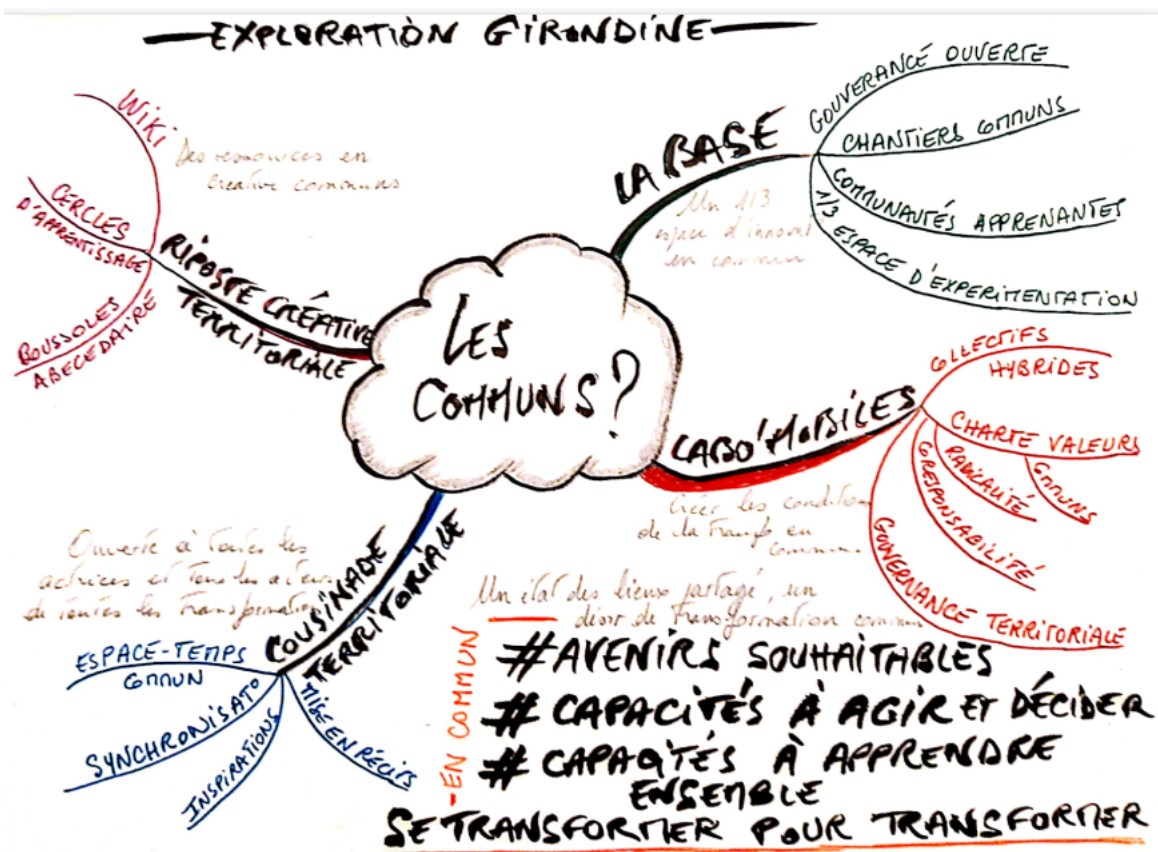 EXPLORATION GIRONDINE
LES
COMMUNS?
LA BASE
Un 1/3
espace d'innovat
en commun
GOUVERANCE OUVERTE
CHANTIERS COMMUNS
COMMUNAUTÉS APPRENANTES
1/3 ESPACE D'EXPERIMENTATION
LABO'MOBILES
Créer les condition
de la transf en
commun
COLLECTIFS
HYBRIDES
CHARTE VALEURS
COMMUNS
RADICALITÉ
CORESPONSABILITÉ
GOUVERNANCE TERRITORIALE
RIPOSTE CRÉATIVE
TERRITORIALE
Des ressources en
Creative communs
WIKI
CERCLES
D'APPRENTISSAGE
BOUSSOLES
ABECEDAIRE
COUSINADE
TERRITORIALE
Ouverte à toutes les
actrices et tous les
de toutes les transformation
ESPACE-TEMPS
COMMUN
SYNCHRONISATO
INSPIRATIONS
MISE EN RÉCITS
Un état des lieux partagé, un
désir de transformation commun
-EN COMMUN
#AVENIRS SOUHAITABLES
# CAPACITÉS À AGIR ET DÉCIDER
# CAPACITÉS À APPRENDRE
ENSEMBLE
SE TRANSFORMER POUR TRANSFORMER